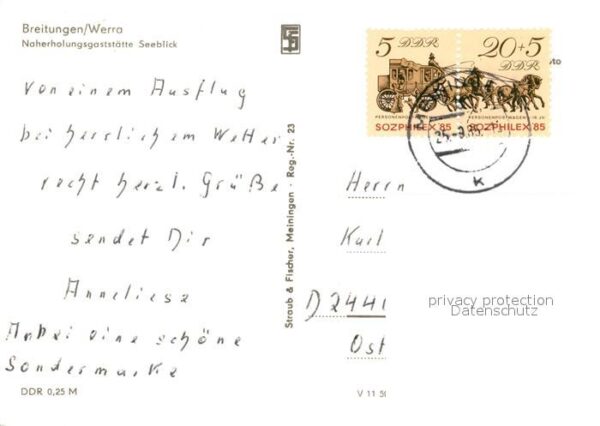 Breitungen/Werra
Naherholungsgaststätte Seeblick
von einem Ausflug
bei herrlichem Wetter
recht herzl. Grüße
sendet Dir
Anneliese
Anbei eine schöne
Sondermarke
DDR 0,25 M
Straub & Fischer, Meiningen · Reg.-Nr. 23
5 DDR
20+5
DDR
SOZPHILEX 85
SOZPHILEX 85
k
Herrn
Karl
D 2441
Ost
V 11 50
privacy protection
Datenschutz